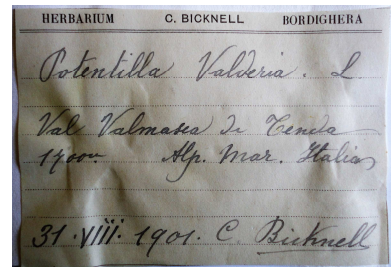 HERBARIUM C. BICKNELL BORDIGHERA
Potentilla Valderia. L
Val Valmasca di Tenda
1700m Alp. Mar. Italia
31. VIII. 1901. C. Bicknell